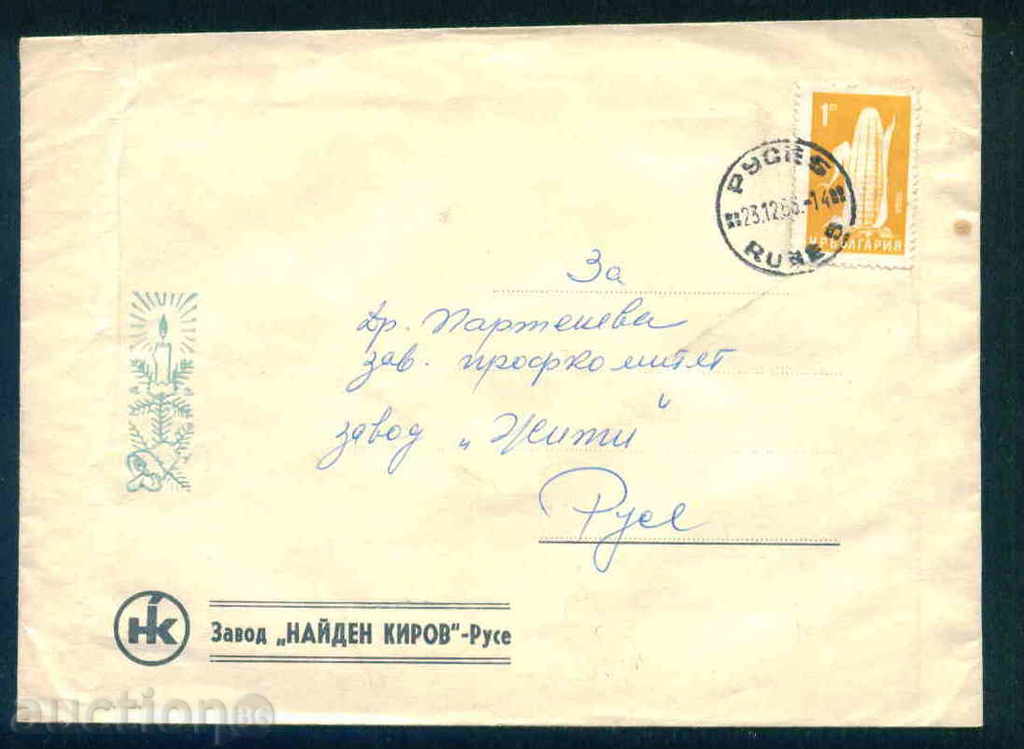 1ст
Н.Р.БЪЛГАРИЯ
РУСЕ 5
23.12.66.-14
RUSE
За
Др. Партенева
зав. профкомитет
завод „Жити"
Русе
НК
Завод „НАЙДЕН КИРОВ"-Русе
auction.BG